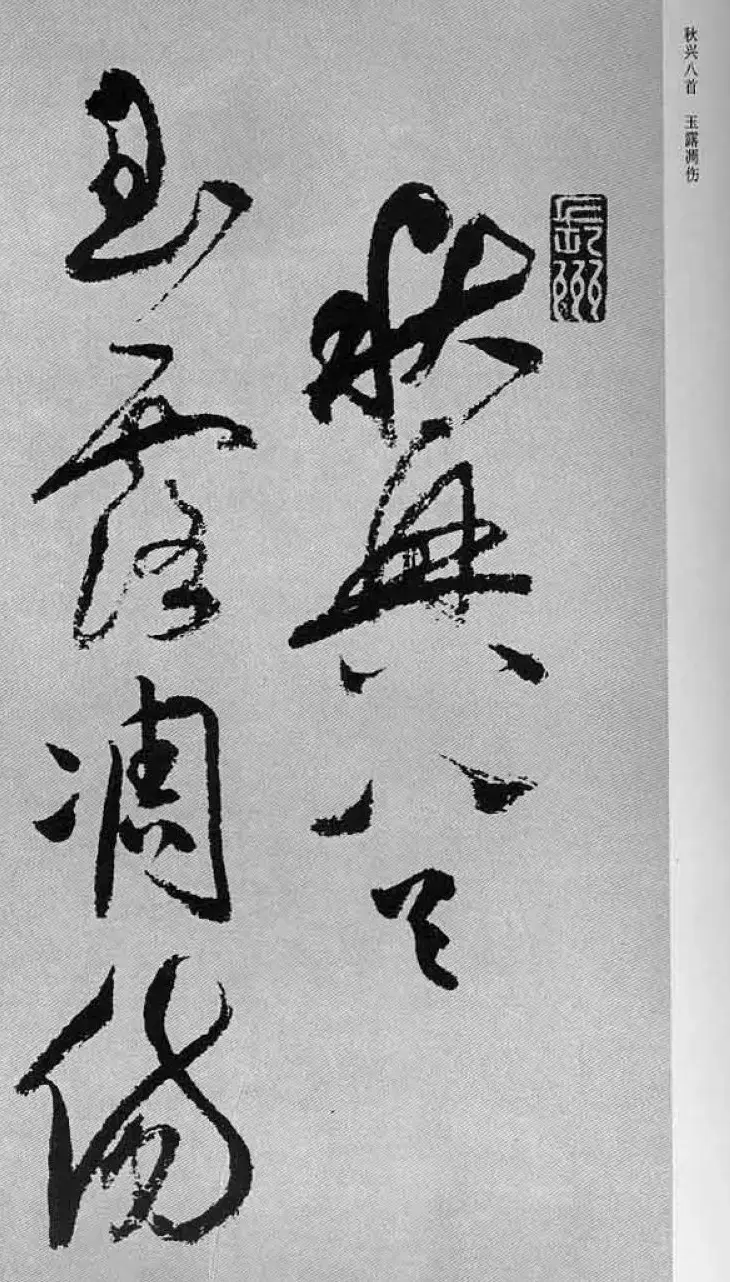 秋兴八首 玉露凋伤
長洲
秋興八首
玉露凋傷